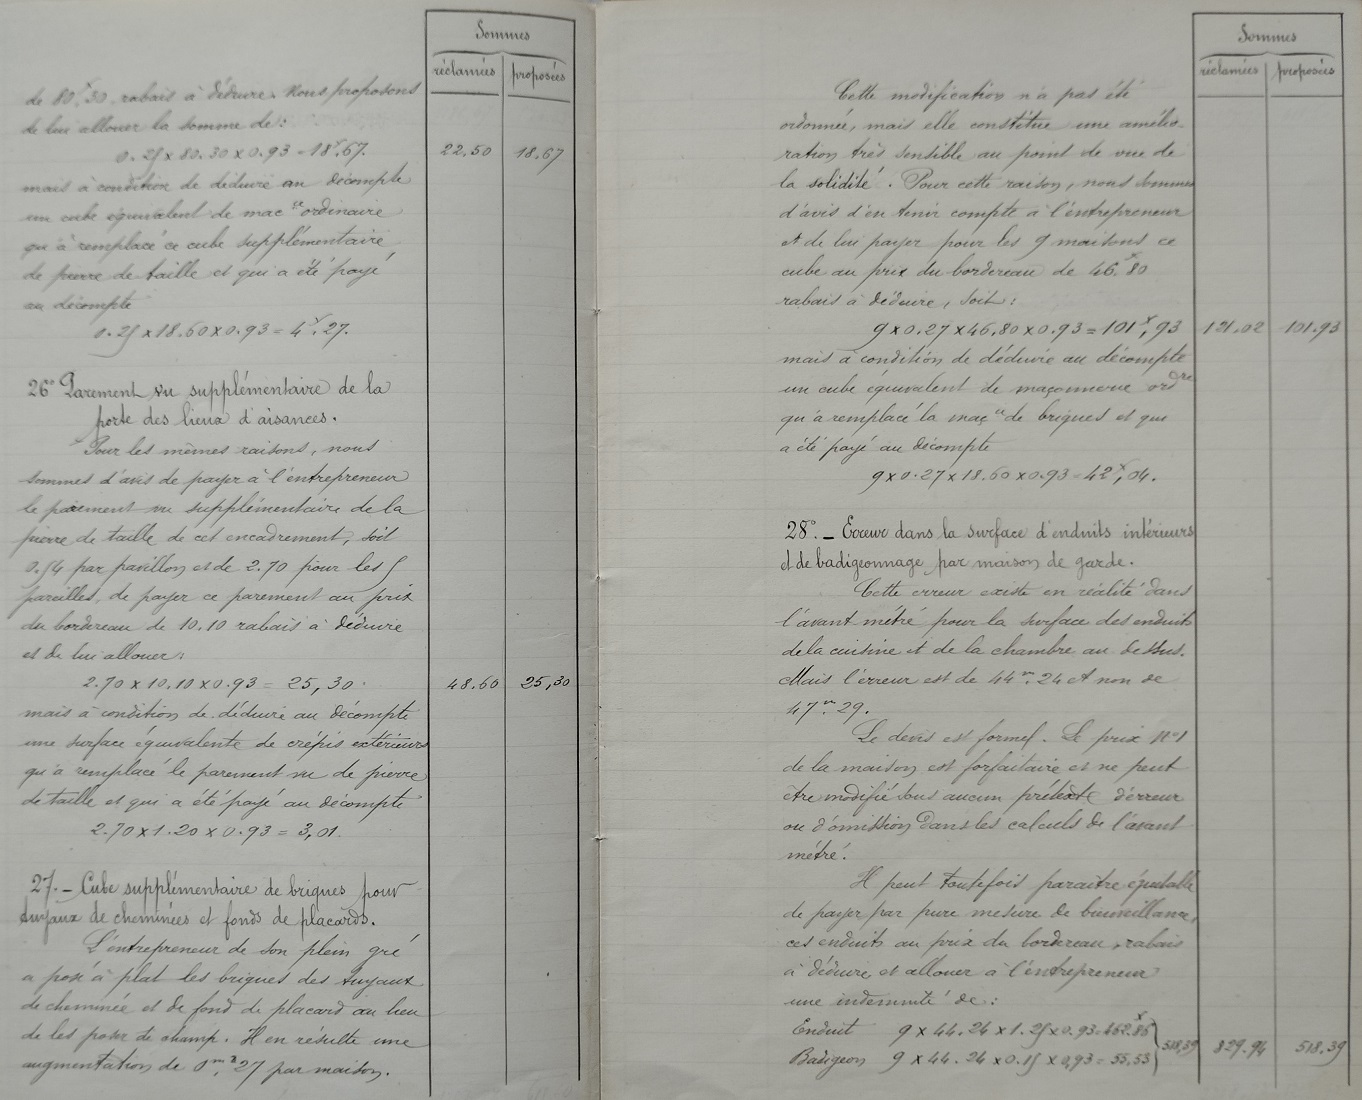 Sommes
réclamées proposées
de 80f,30 rabais à déduire. Nous proposons
de lui allouer la somme de :
0.25 x 80.30 x 0.93 = 18f.67. 22.50 18.67
mais à condition de déduire au décompte
un cube équivalent de mac ie ordinaire
qui a remplacé ce cube supplémentaire
de pierre de taille et qui a été payé
au décompte
0.25 x 18.60 x 0.93 = 4f.27.
26° Parement vu supplémentaire de la
porte des lieux d'aisances.
Pour les mêmes raisons, nous
sommes d'avis de payer à l'entrepreneur
le parement vu supplémentaire de la
pierre de taille de cet encadrement, soit
0.54 par pavillon et de 2.70 pour les 5
pareilles, de payer ce parement au prix
du bordereau de 10.10 rabais à déduire
et de lui allouer :
2.70 x 10.10 x 0.93 = 25,30. 48.60 25,30
mais à condition de déduire au décompte
une surface équivalente de crépis extérieurs
qui a remplacé le parement vu de pierre
de taille et qui a été payé au décompte
2.70 x 1.20 x 0.93 = 3,01.
27. - Cube supplémentaire de briques pour
tuyaux de cheminées et fonds de placards.
L'entrepreneur de son plein gré
a posé à plat les briques des tuyaux
de cheminée et de fond de placard au lieu
de les poser de champ. Il en résulte une
augmentation de 0m3,27 par maison.
Sommes
réclamées proposées
Cette modification n'a pas été
ordonnée, mais elle constitue une amélio-
ration très sensible au point de vue de
la solidité. Pour cette raison, nous sommes
d'avis d'en tenir compte à l'entrepreneur
et de lui payer pour les 9 maisons ce
cube au prix du bordereau de 46f.80
rabais à déduire, soit :
9 x 0.27 x 46,80 x 0.93 = 101f,93 121.02 101.93
mais à condition de déduire au décompte
un cube équivalent de maçonnerie ordre
qui a remplacé la maç ie de briques et qui
a été payé au décompte
9 x 0.27 x 18.60 x 0.93 = 42f,04.
28°. - Erreur dans la surface d'enduits intérieurs
et de badigeonnage par maison de garde.
Cette erreur existe en réalité dans
l'avant métré pour la surface des enduits
de la cuisine et de la chambre au dessus.
Mais l'erreur est de 44m.24 et non de
47m.29.
Le devis est formel. Le prix N°1
de la maison est forfaitaire et ne peut
être modifié sous aucun prétexte d'erreur
ou d'omission dans les calculs de l'avant
métré.
Il peut toutefois paraître équitable
de payer par pure mesure de bienveillance,
ces enduits au prix du bordereau, rabais
à déduire et allouer à l'entrepreneur
une indemnité de :
Enduit 9 x 44.24 x 1.25 x 0.93 = 462f.86
Badigeon 9 x 44.24 x 0.15 x 0,93 = 55,53 518,39 829.94 518,39